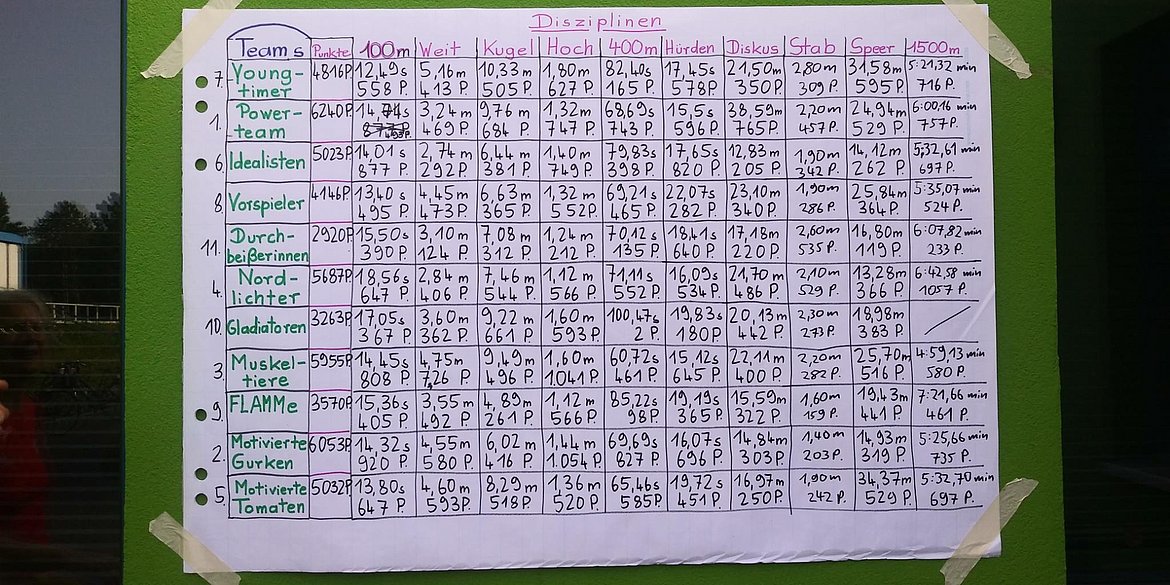 Disziplinen
Teams Punkte 100m Weit Kugel Hoch 400m Hürden Diskus Stab Speer 1500m
7. Young- 4816P 12,49s 5,16m 10,33m 1,80m 82,40s 17,45s 21,50m 2,80m 31,58m 5:21,32 min
timer 558 P. 413 P. 505 P. 627 P. 165 P. 578P 350P. 309 P. 595 P. 716 P.
1. Power- 6240P. 3,24m 9,76 m 1,32m 68,69s 15,5s 38,59m 2,20m 24,94m 6:00,16 min
team 469 P. 684 P. 747 P. 743 P. 596 P. 765P. 457P. 529 P. 757P.
6. Idealisten 5023P. 14,01 s 2,74m 6,44m 1,40m 79,83s 17,65s 12,83m 1,90m 14,12m 5:32,61 min
877 P. 292P. 381 P. 749 P. 398 P. 820 P. 205 P. 342 P. 262 P. 697P.
8. Vorspieler 4146P. 13,40s 4,45m 6,63m 1,32 m 69,21s 22,07s 23,10m 1,90m 25,84m 5:35,07 min
495 P. 473P. 365 P. 552P. 465 P. 282 P. 340P. 286 P. 364P. 524 P.
11. Durch- 2920P. 15,50s 3,10m 7,08m 1,24m 70,12s 18,41s 17,18m 2,60m 16,80m 6:07,82 min
beißerinnen 390P. 124 P. 312 P. 212 P. 135 P. 640 P. 220 P. 535 P. 119P. 233 P.
4. Nord- 5687P. 18,56s 2,84m 7,46m 1,12m 71,11s 16,09s 21,70m 2,10m 13,28m 6:42,58 min
lichter 647 P. 406 P. 544 P. 566 P. 552 P. 534 P. 486 P. 529 P. 366 P. 1057 P.
10. Gladiatoren 3263P. 17,05s 3,60m 9,22 m 1,60m 100,47s 19,83s 20,13m 2,30m 18,98m
367 P. 362 P. 661 P. 593 P. 2 P. 180P. 442 P. 273P. 383 P.
3. Muskel- 5955P. 14,45s 4,75m 9,49m 1,60m 60,72s 15,12s 22,11m 2,20m 25,70m 4:59,13 min
tiere 808 P. 726 P. 496 P. 1.041 P. 461 P. 645 P. 400 P. 282 P. 516 P. 580 P.
9. FLAMMe 3570P. 15,36s 3,55m 4,89m 1,12 m 85,22s 19,19s 15,59m 1,60m 19,43m 7:21,66 min
405 P. 492 P. 261 P. 566 P. 98P. 365P. 322 P. 159 P. 441 P. 461 P.
2. Motivierte 6053P. 14,32s 4,55m 6,02 m 1,44m 69,69s 16,07s 14,84m 1,40m 14,93m 5:25,66 min
Gurken 920 P. 580 P. 416 P. 1.054 P. 827 P. 696 P. 303P. 203P. 319 P. 735 P.
5. Motivierte 5032P. 13,80s 4,60m 8,29m 1,36m 65,46s 19,72s 16,97m 1,90m 34,37m 5:32,70 min
Tomaten 647 P. 593P. 518P. 520 P. 585P. 451P. 250P. 242 P. 529 P. 697 P.